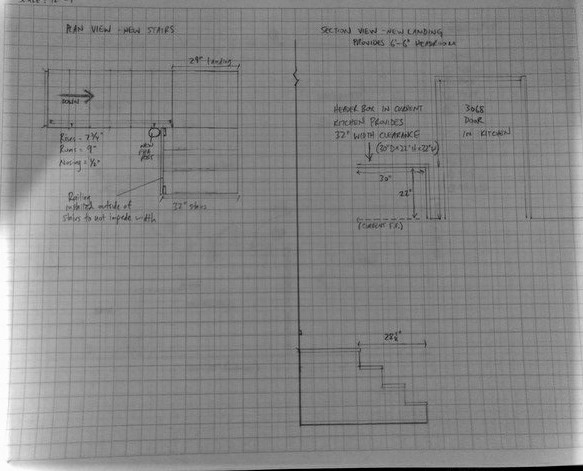 PLAN VIEW - NEW STAIRS
29" landing
DOWN
Rises = 7 3/4"
Runs = 9"
Nosing = 1/2"
NEW
POST
Railing
installed outside of
stairs to not impede width
32" stairs
SECTION VIEW - NEW LANDING
PROVIDES 6'-6" HEADROOM
HEADER BOX IN CURRENT
KITCHEN PROVIDES
32" WIDTH CLEARANCE
(30"D×22"H×32"W)
30"
22"
(CURRENT F.F.)
3068
DOOR
IN KITCHEN
28 1/2"